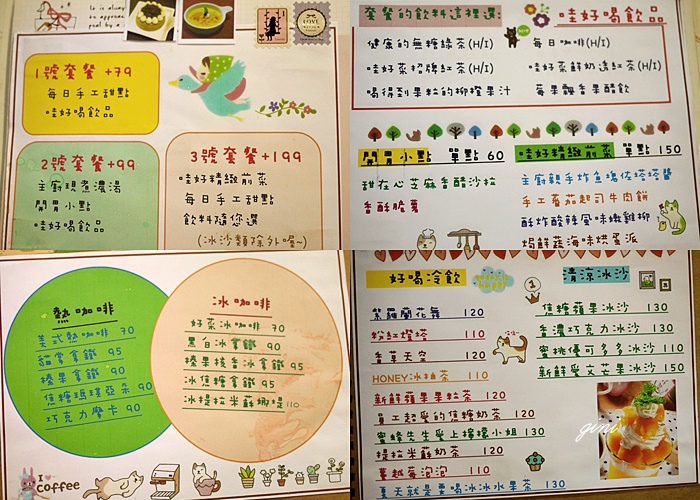 It is always
1號套餐 +79
每日手工甜點
哇好喝飲品
2號套餐 +99
主廚現煮濃湯
開胃小點
哇好喝飲品
3號套餐 +199
哇好精緻前菜
每日手工甜點
飲料隨您選
(冰沙類除外喔~)
LOVE
套餐的飲料這裡選:
哇好喝飲品
健康的無糖綠茶(H/I)
每日咖啡(H/I)
哇好茶招牌紅茶(H/I)
哇好茶鮮奶透紅茶(H/I)
喝得到果粒的柳橙果汁
莓果飄香果醋飲
開胃小點 單點 60
哇好精緻前菜 單點 150
甜在心芝麻香醋沙拉
香酥脆薯
主廚親手炸魚塊佐塔塔醬
手工番茄起司牛肉餅
酥炸酸辣風味嫩雞柳
焗鮮蔬海味烘蛋派
熱咖啡
美式熱咖啡 70
貓掌拿鐵 95
榛果拿鐵 90
焦糖瑪琪亞朵 90
巧克力摩卡 90
冰咖啡
好茶冰咖啡 70
黑白冰拿鐵 90
榛果核香冰拿鐵 95
冰焦糖拿鐵 95
冰提拉米蘇娜堤 110
I
coffee
好喝冷飲
紫羅蘭花舞 120
粉紅燈塔 110
香草天空 120
HONEY冰柚茶 110
新鮮蘋果果粒茶 120
員工超愛的焦糖奶茶 120
蜜蜂先生愛上檸檬小姐 130
提拉米蘇奶茶 120
蔓越莓泡泡 110
夏天就是要喝冰冰水果茶 130
清涼冰沙
焦糖蘋果冰沙 130
香濃巧克力冰沙 130
蜜桃優可多多冰沙 110
新鮮愛文芒果冰沙 150